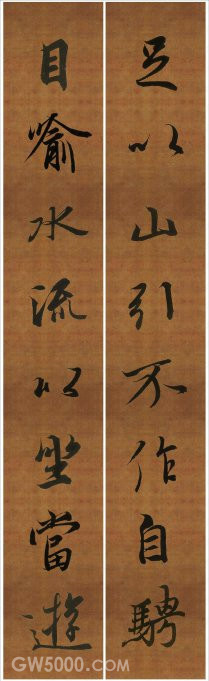 足以山引不作自騁
目喻水流以坐當遊
GW5000.com